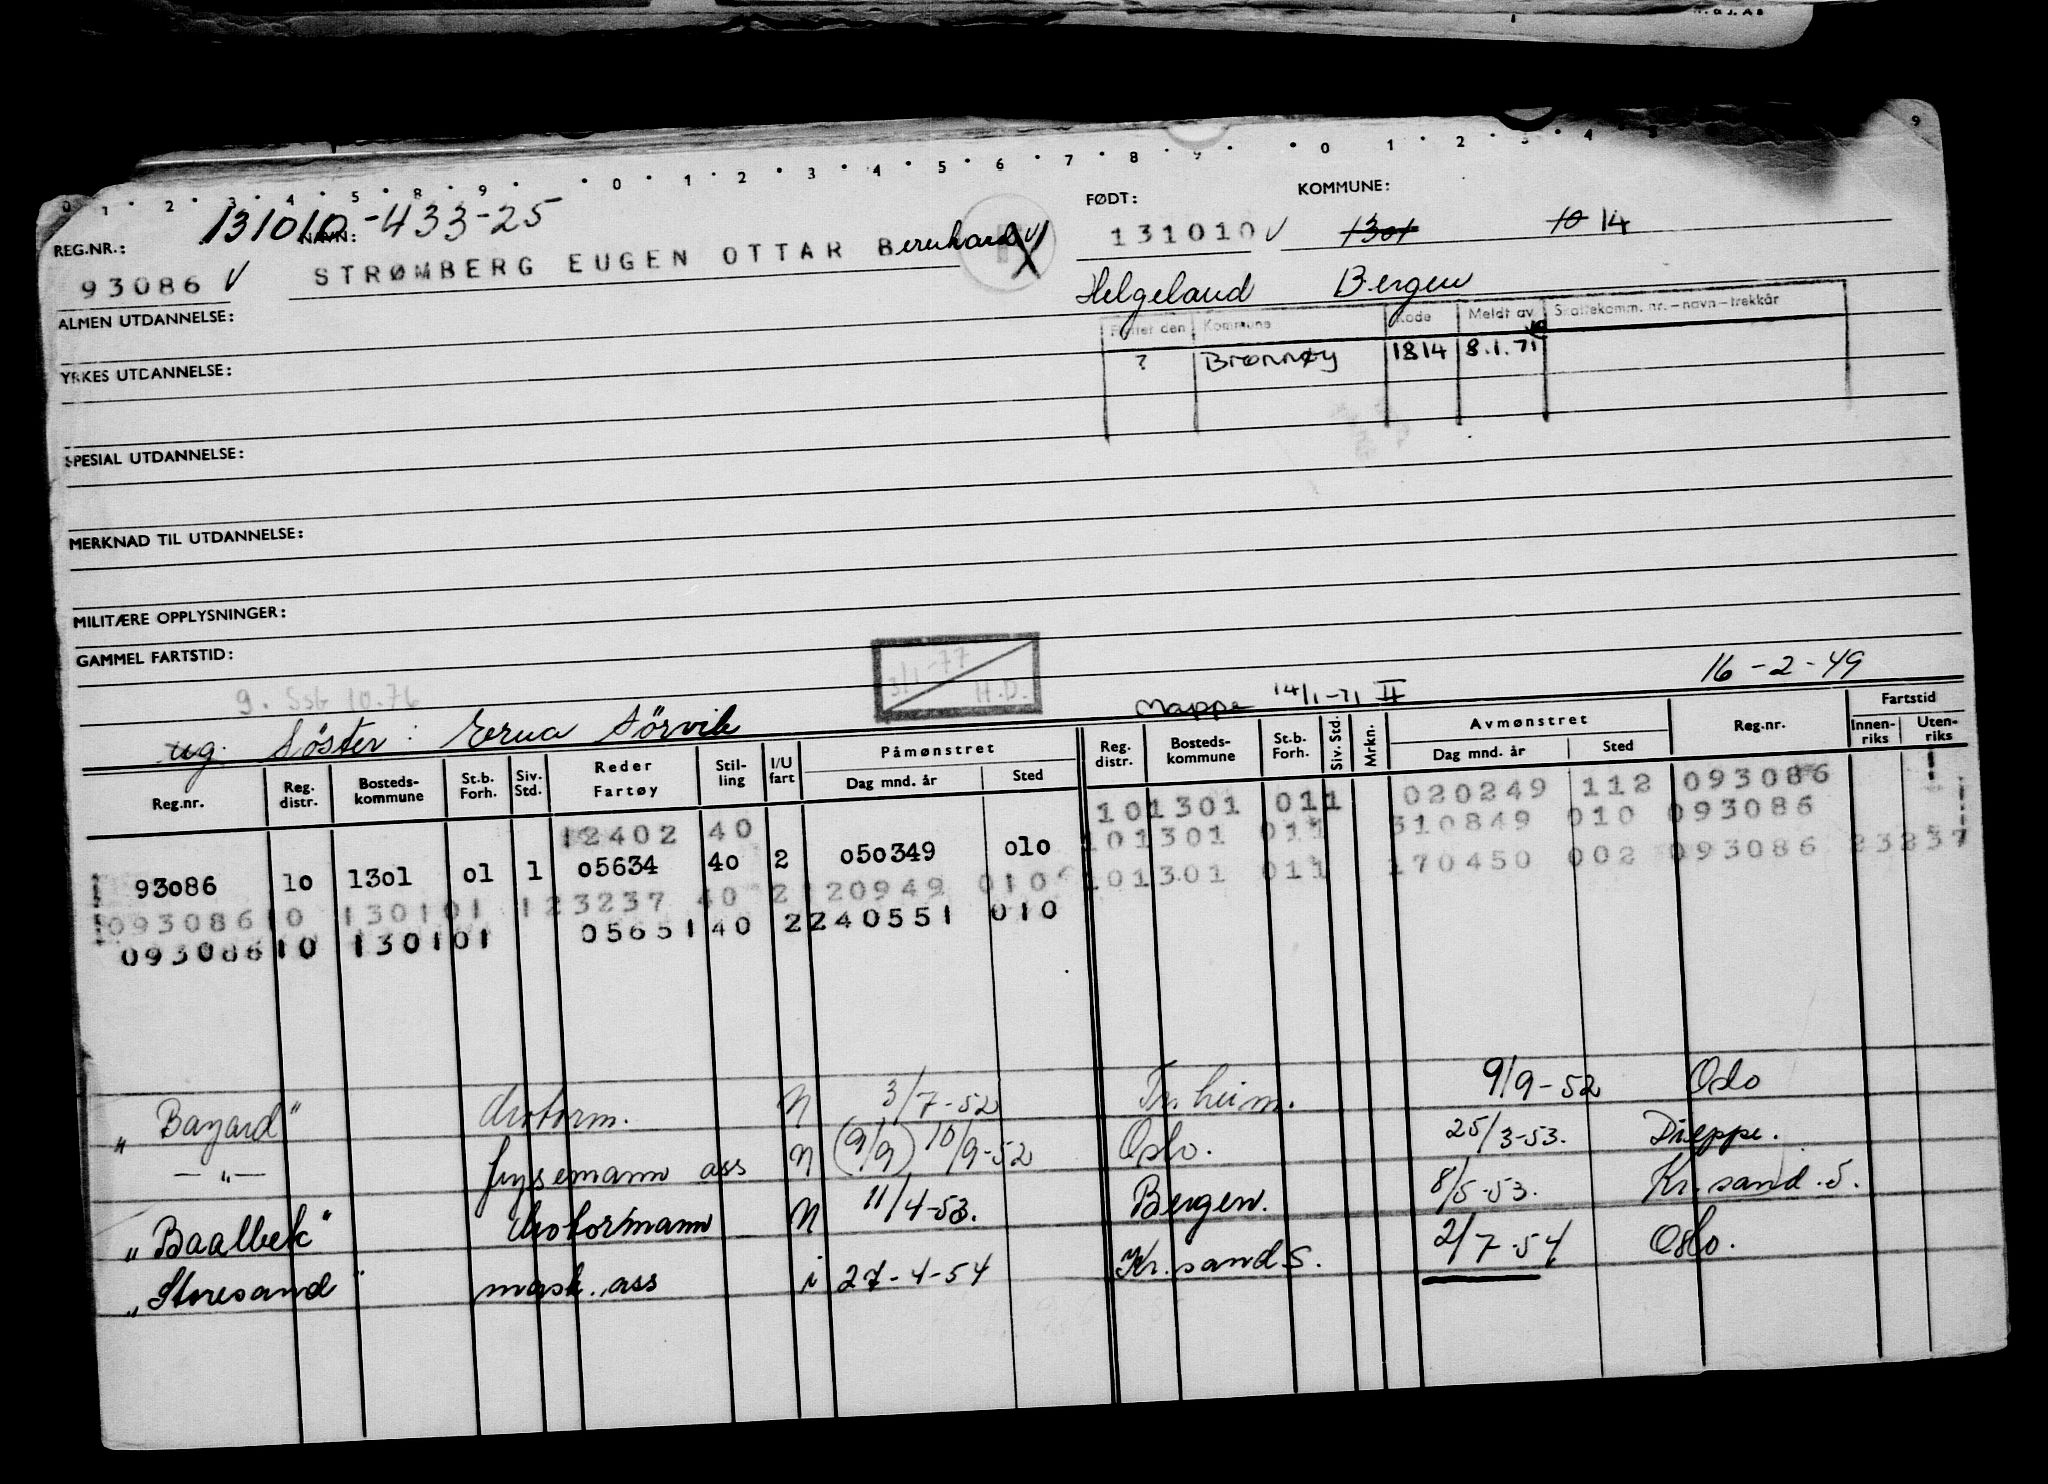 0 1 2 3 4 5 8 9 0 1 2 3 4 5 6 7 8 9 0 1 2 3 4 9
131010-433-25
REG.NR.: NAVN: FØDT: KOMMUNE:
93086 V STRØMBERG EUGEN OTTAR Bernhard V 131010 V 1301 10 14
Helgeland Bergen
ALMEN UTDANNELSE:
Flyttet den Kommune Kode Meldt av Skattekomm. nr.-navn-trekkår
? Brønnøy 1814 8.1.71
YRKES UTDANNELSE:
SPESIAL UTDANNELSE:
MERKNAD TIL UTDANNELSE:
MILITÆRE OPPLYSNINGER:
GAMMEL FARTSTID:
3/1-77 H.D.
16-2-49
g. Sst 10.76
Mappe 14/1-71 II
ug. Søster: Erna Sörvik
Reg.nr. Reg. distr. Bosteds-kommune St.b. Forh. Siv. Std. Reder Fartøy Stil-ling I/U fart Påmønstret Dag mnd. år Sted Reg. distr. Bosteds-kommune St.b. Forh. Siv. Std. Mrkn. Avmønstret Dag mnd. år Sted Reg.nr. Fartstid Innen-riks Uten-riks
12402 40 101301 011 020249 112 093086
93086 10 1301 01 1 05634 40 2 050349 010 101301 011 310849 010 093086
093086 10 130101 123237 40 2 120949 010 101301 011 170450 002 093086 23237
093086 10 130101 05651 40 2 240551 010
"Bayard" Motorm. N 3/7-52 Tr.heim. 9/9-52 Oslo
—"— frysemann ass N (9/9) 10/9-52 Oslo. 25/3-53. Dieppe.
"Baalbek" Motormann N 11/4-53. Bergen. 8/5-53. Kr.sand.S.
"Storesand" mask.ass i 27-4-54 Kr.sand S. 2/7-54 Oslo.